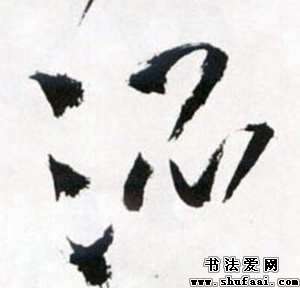 沉
书法爱网
www.shufaai.com